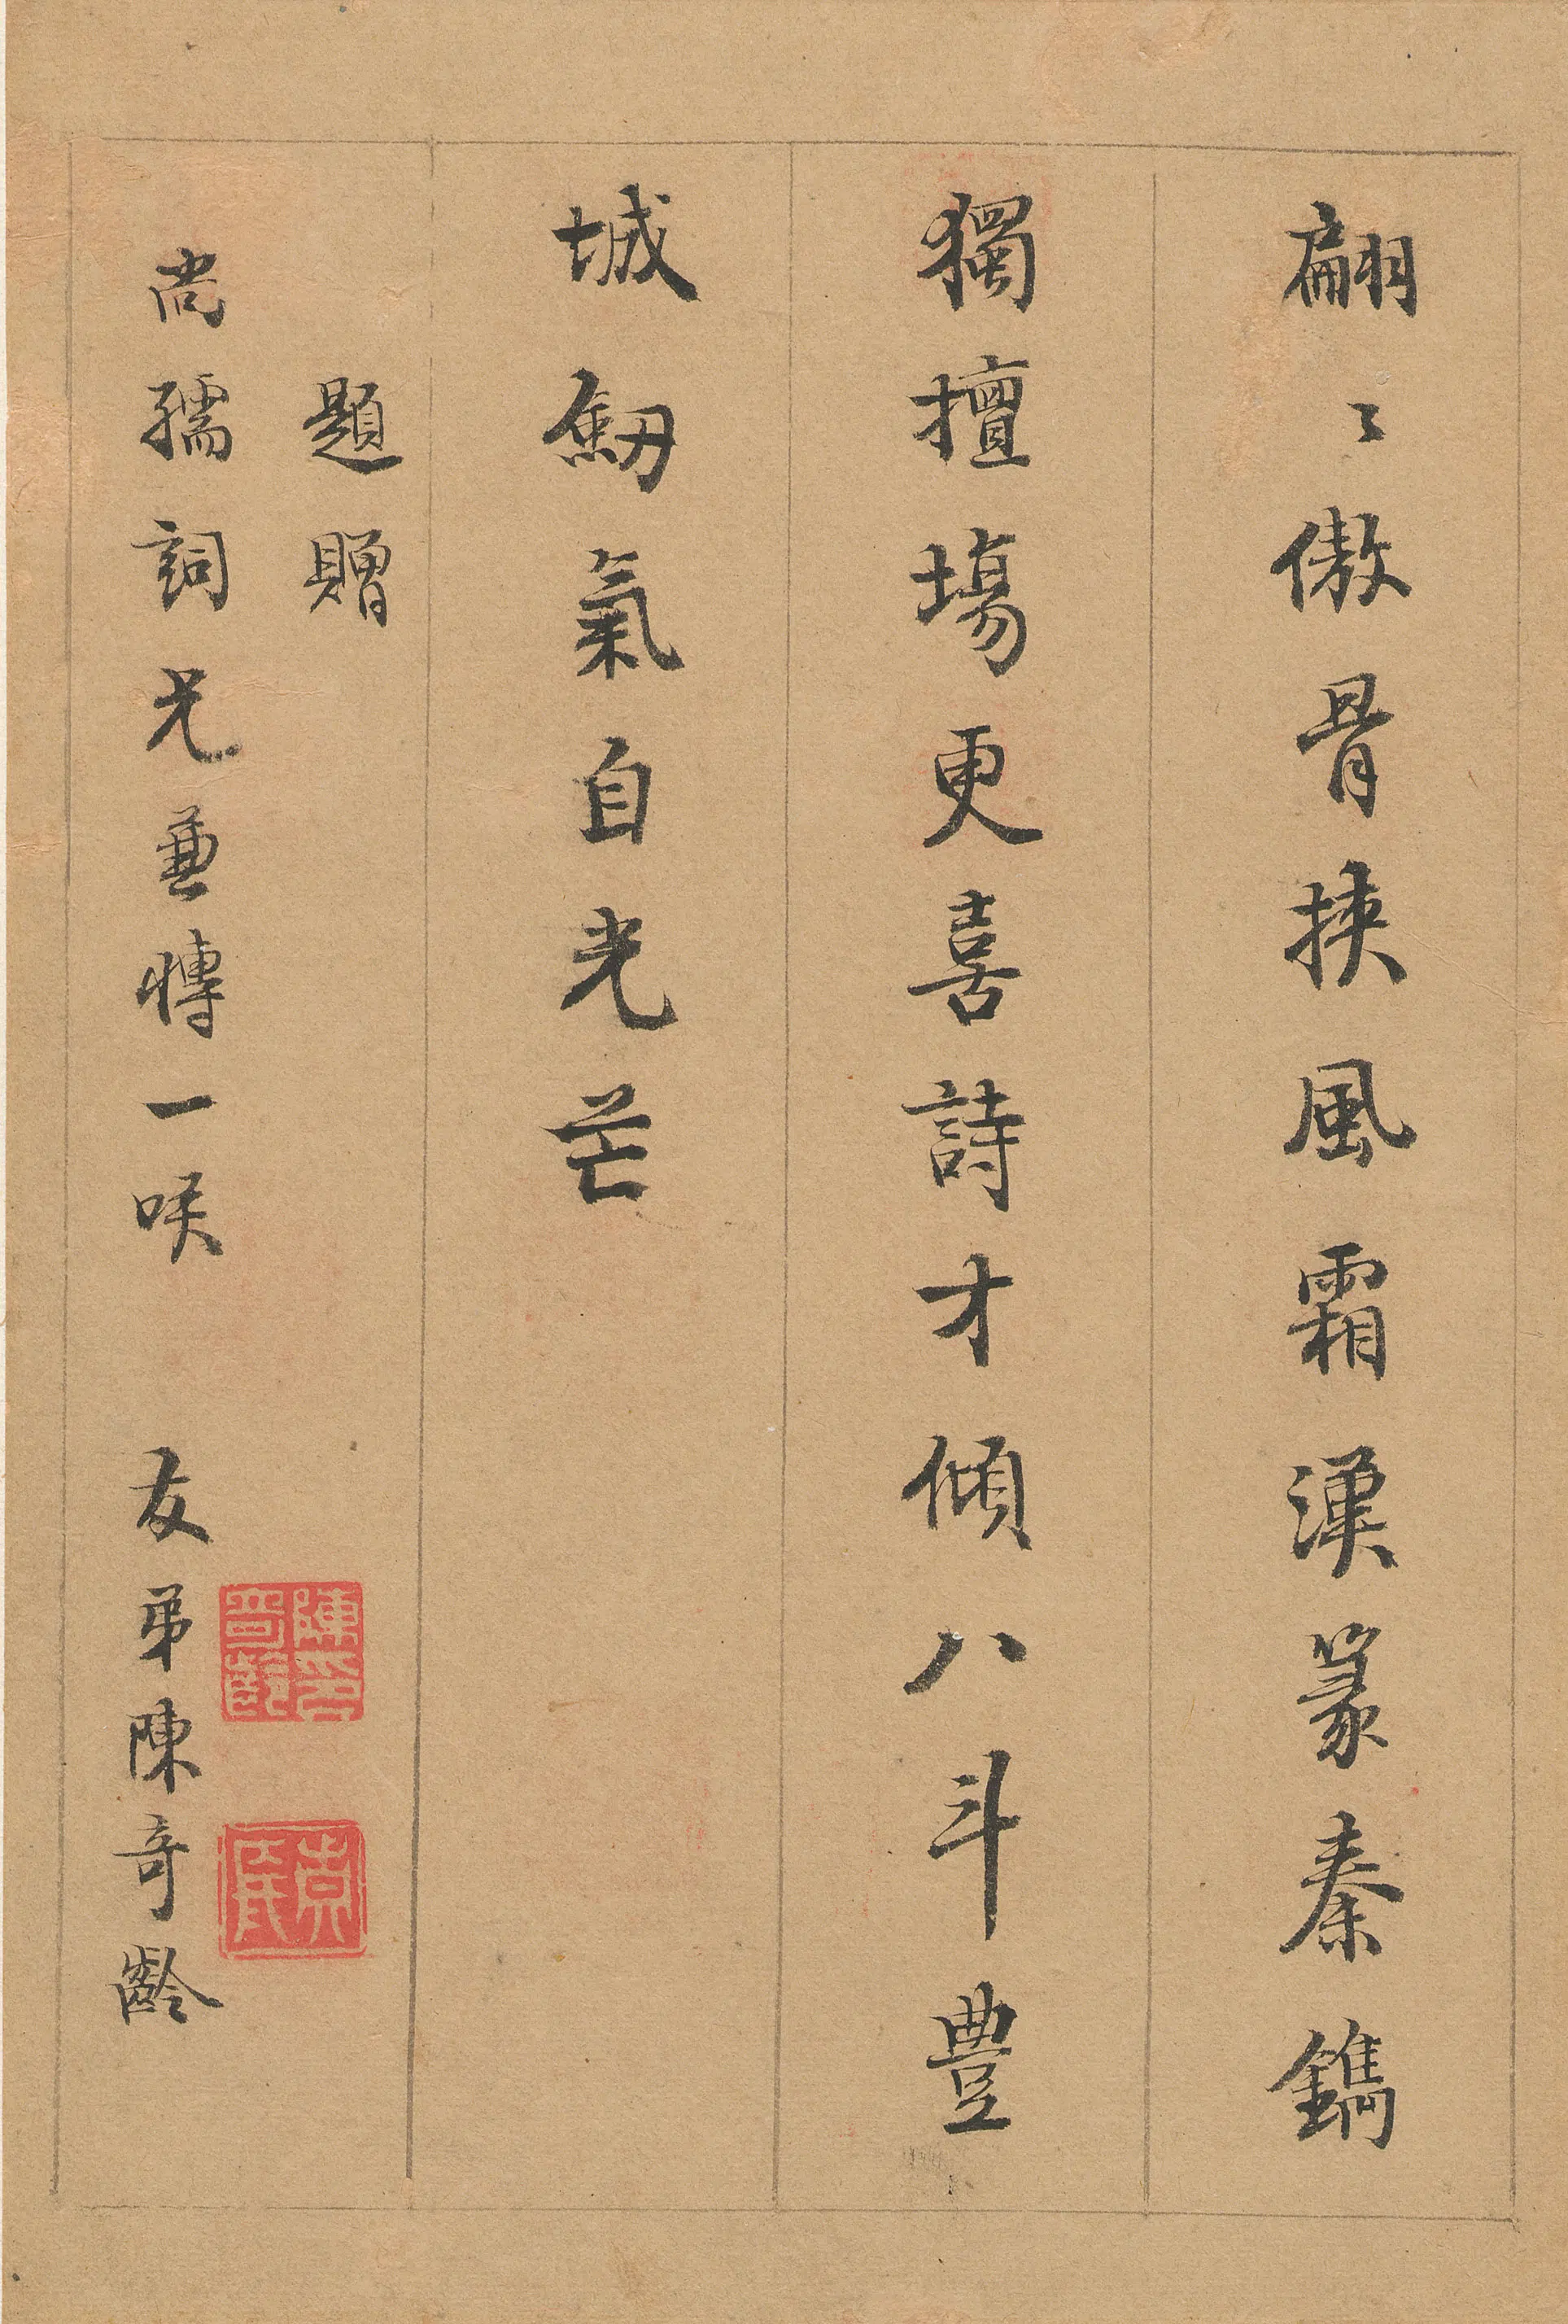 翩〻傲骨挾風霜漢篆秦鐫
獨擅場更喜詩才傾八斗豊
城釼氣自光芒
題贈
尚孺詞兄兼博一咲 友弟陳奇齡
陳印奇齡